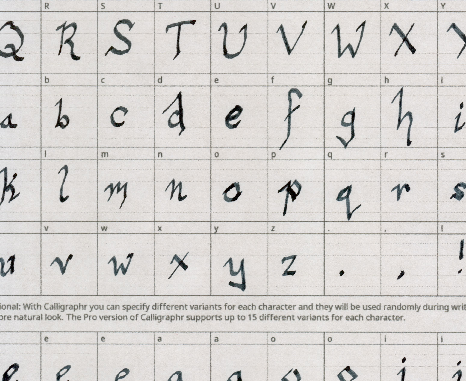 R S T U V W X Y
Q R S T U V W X Y
b c d e f g h i
a b c d e f g h i
l m n o p q r s
k l m n o p q r s
v w x y z . , !
u v w x y z . , !
ional: With Calligraphr you can specify different variants for each character and they will be used randomly during writ
ore natural look. The Pro version of Calligraphr supports up to 15 different variants for each character.
e e a a o o i i
e e e a a o o i i